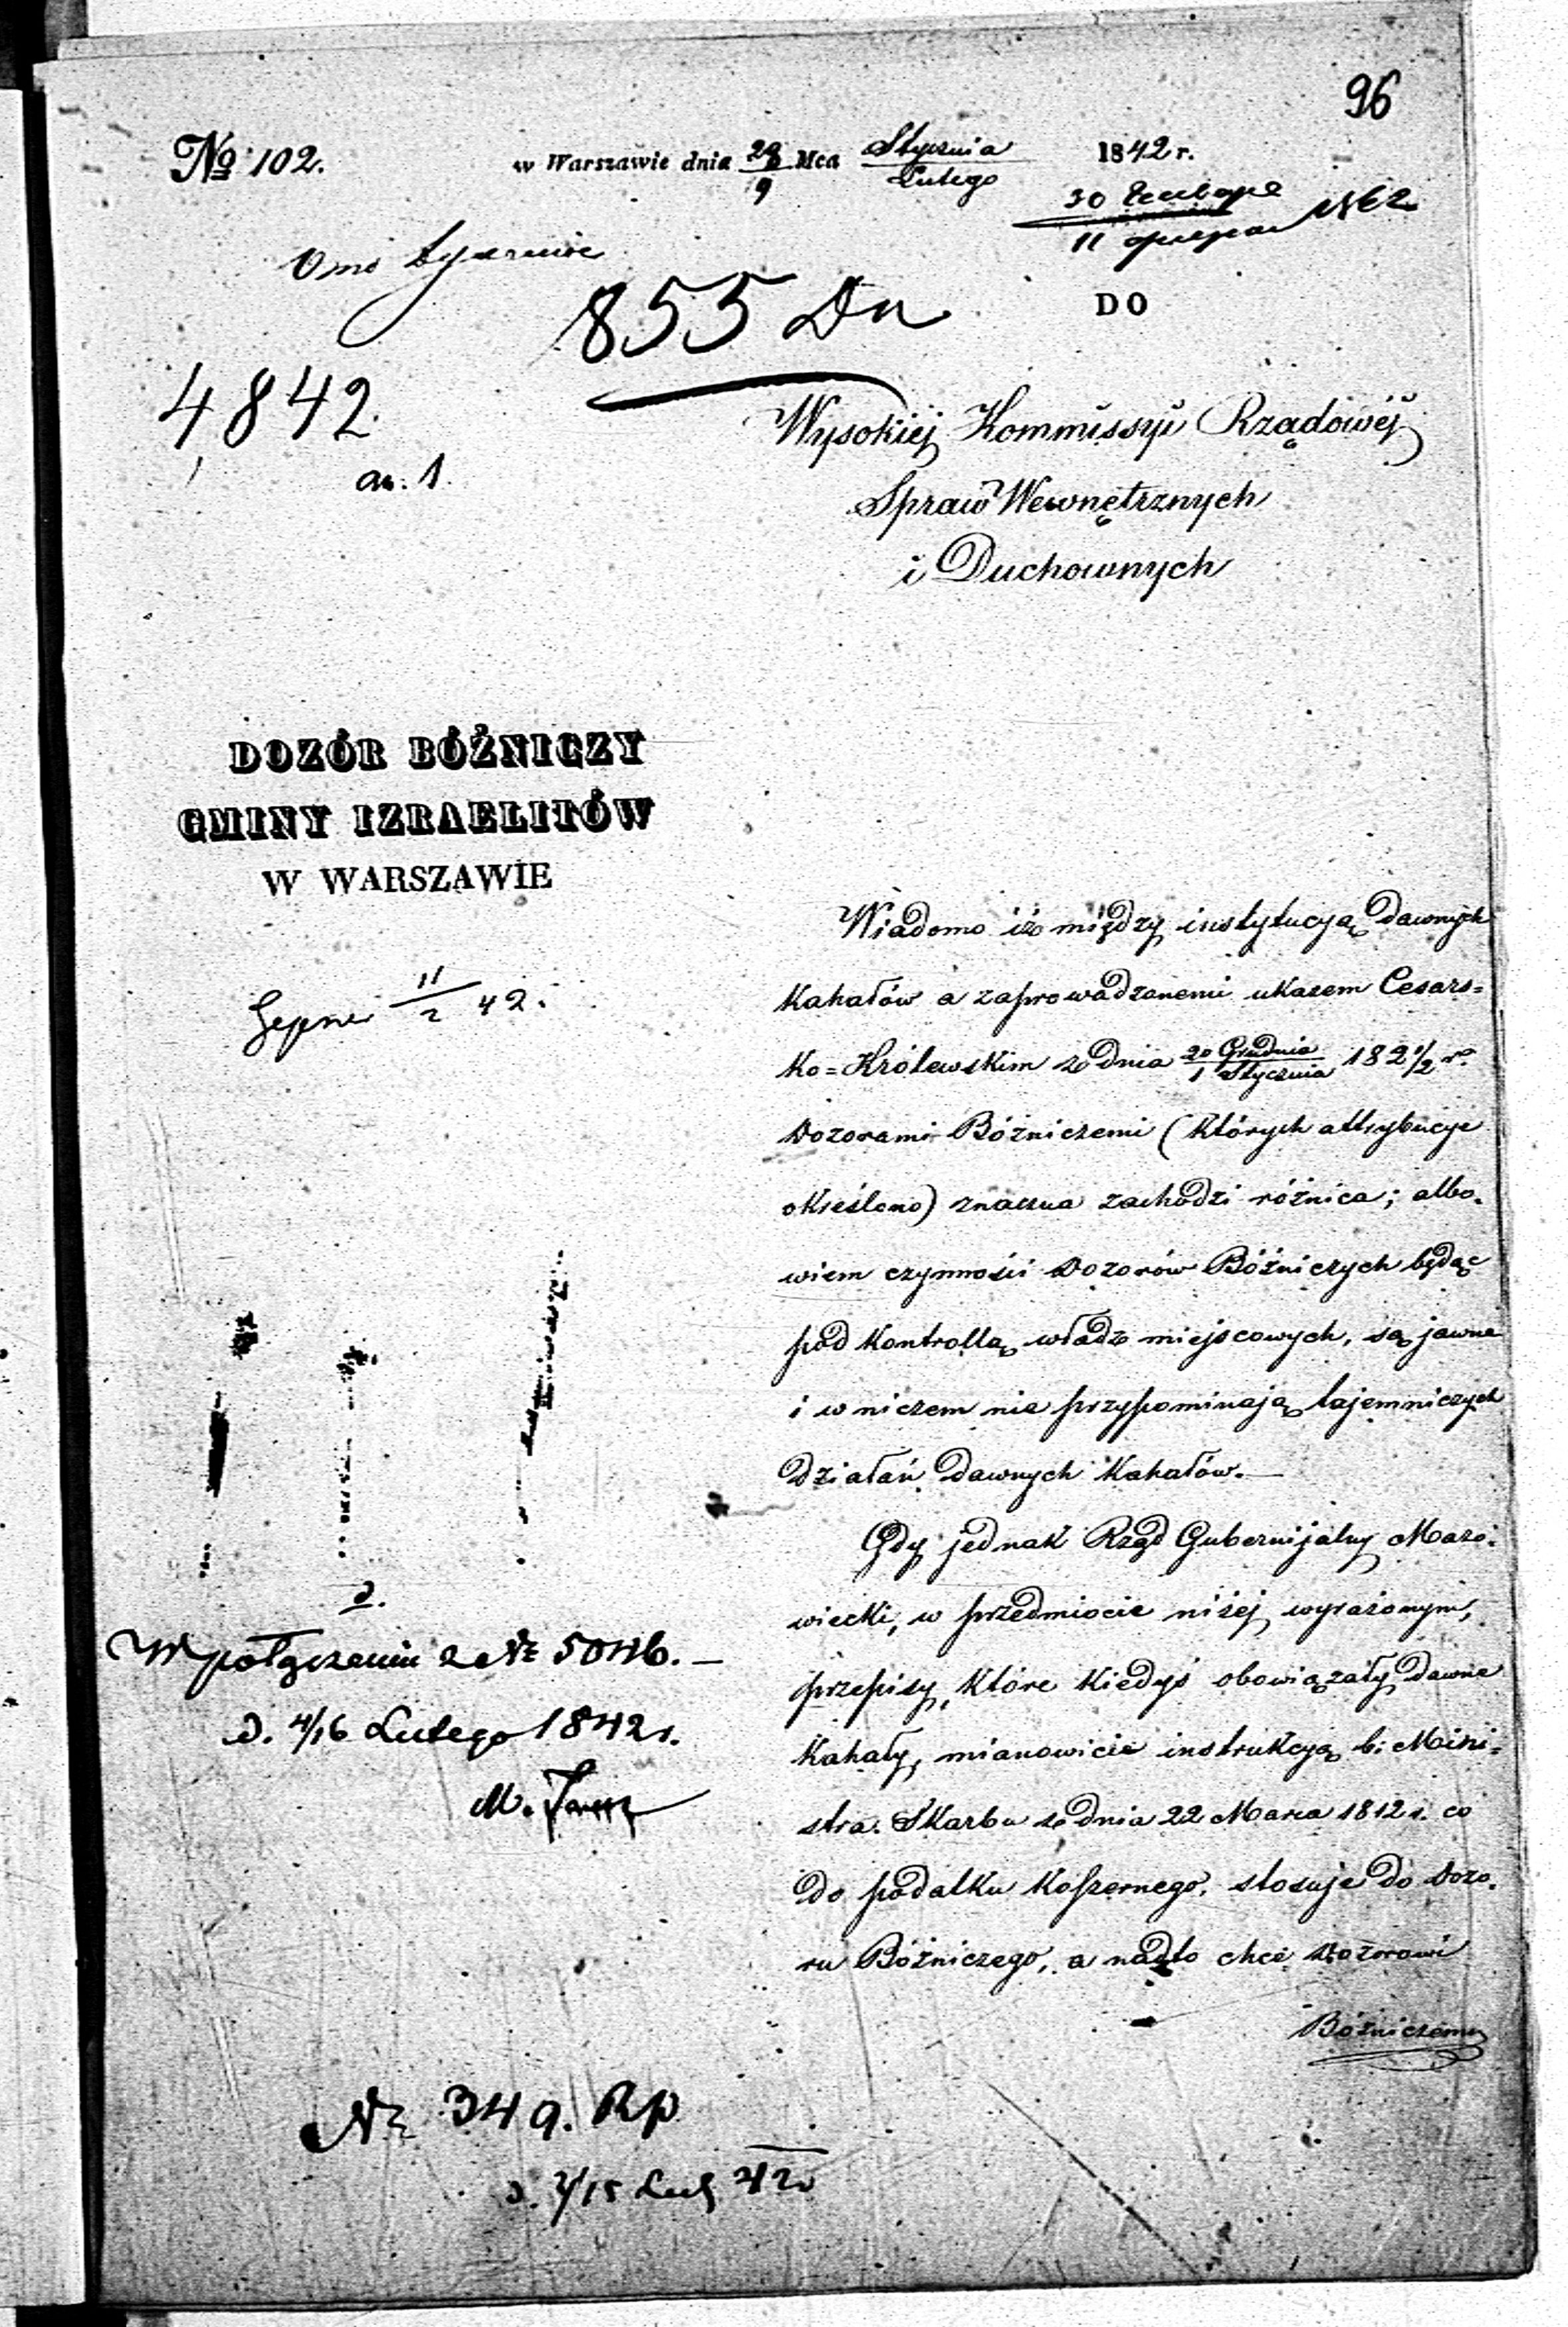 96
№ 102.
w Warszawie dnia 28/9 Mca Stycznia/Lutego 1842 r.
30
11
855 Dn
DO
4842.
an. 1.
Wysokiej Kommissyi Rządowéj
Spraw Wewnętrznych
i Duchownych
DOZÓR BÓŻNICZY
GMINY IZRAELITÓW
W WARSZAWIE
11/2 42.
Wiadomo iż między instytucyą dawnych
Kahałów a zaprowadzonemi ukazem Cesars=
ko=Królewskim z dnia 20 Grudnia/1 Stycznia 182½ r.
Dozorami Bóżniczemi (których attrybucye
określono) znaczna zachodzi różnica; albo-
wiem czynności Dozorów Bóżniczych będąc
pod kontrollą władz miejscowych, są jawne
i w niczem nie przypominają tajemniczych
działań dawnych Kahałów.—
Gdy jednak Rząd Gubernijalny Mazo-
wiecki, w przedmiocie niżej wyrażonym,
przepisy, które kiedyś obowiązały dawne
Kahały, mianowicie instrukcyą b: Mini=
stra Skarbu z dnia 22 Marca 1812 r. co
do podatku koszernego, stosuje do Dozo-
ru Bóżniczego, a nadto chce Dozorowi
Bóżniczemu
W połączeniu z Nr 5046.—
d. 4/16 Lutego 1842 r.
M.
Nr 349. Rp